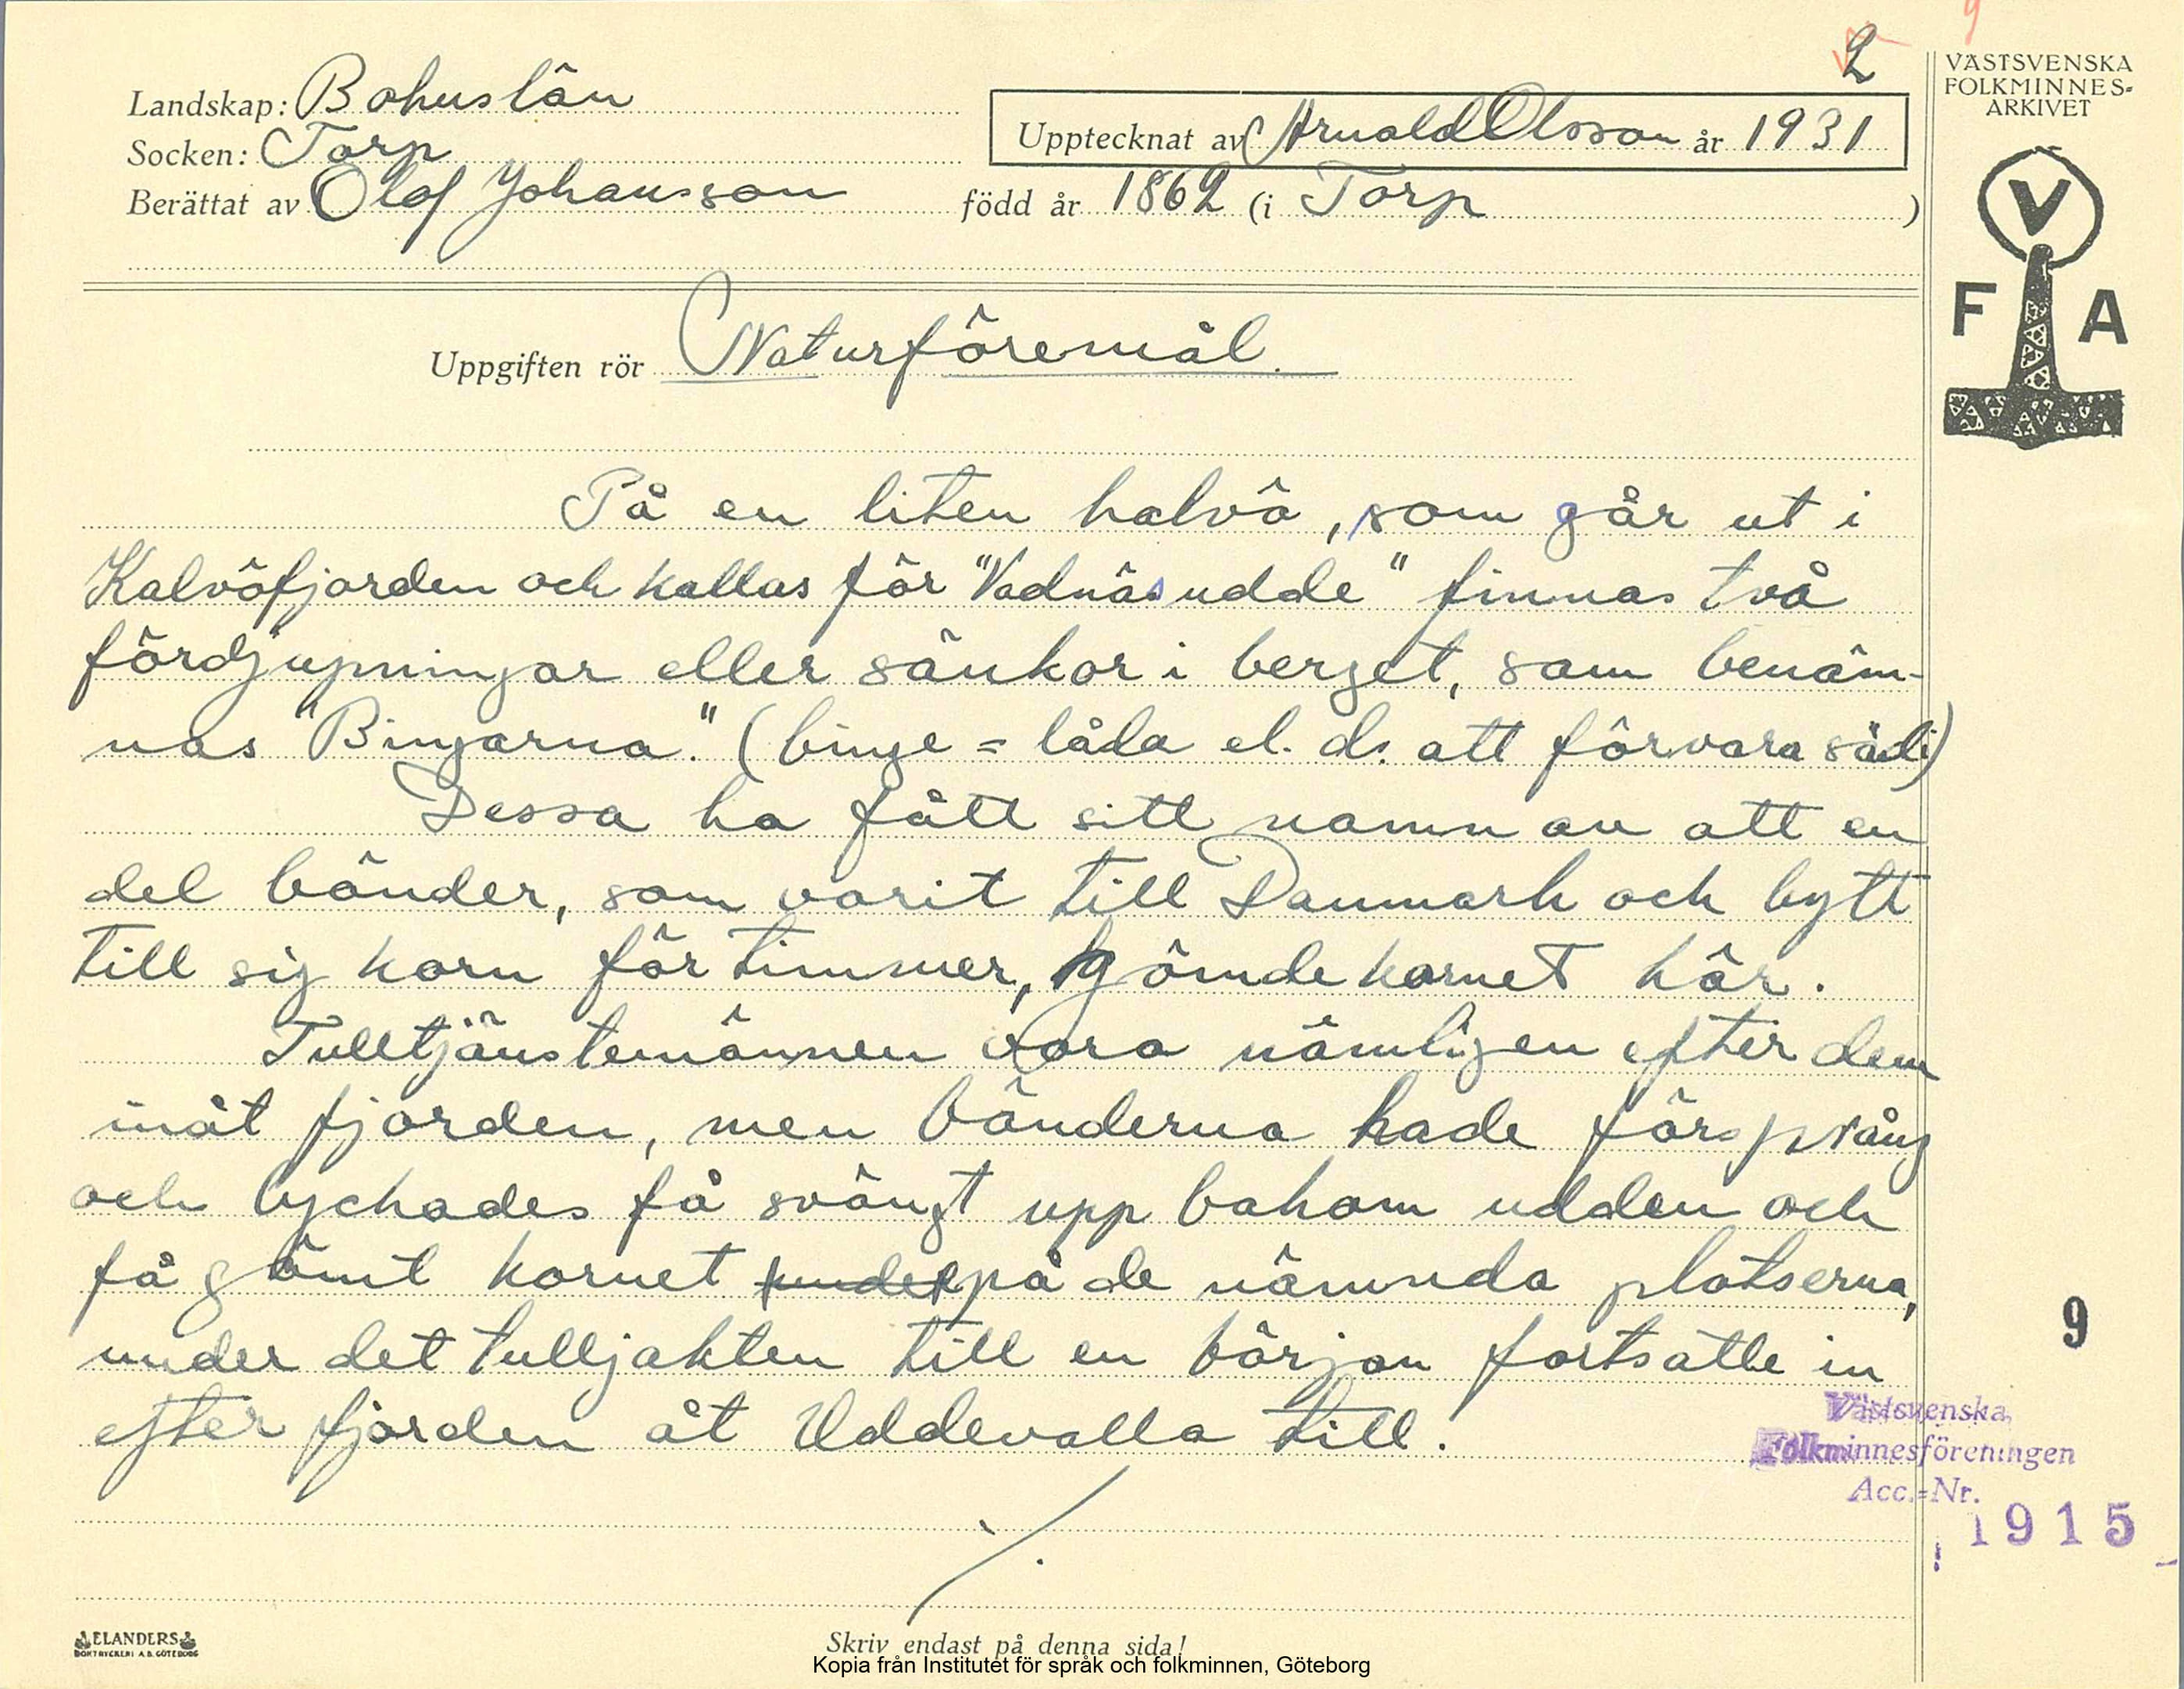 2
9
VÄSTSVENSKA
FOLKMINNES-
ARKIVET
V
F A
Landskap: Bohuslän
Socken: Torp
Upptecknat av Arnold Olsson år 1931
Berättat av Olof Johansson född år 1862 (i Torp )
Uppgiften rör Naturföremål.
På en liten halvö, som går ut i
Kalvöfjorden och kallas för "Vadnäsudde" finnas två
fördjupningar eller sänkor i berget, som benäm-
nas "Bingarna." (binge = låda el. d. att förvara säd i)
Dessa ha fått sitt namn av att en
del bönder, som varit till Danmark och bytt
till sig korn för timmer, gömde kornet här.
Tulltjänstemännen voro nämligen efter dem
inåt fjorden, men bönderna hade försprång
och lyckades få svängt upp bakom udden och
få gömt kornet under på de nämnda platserna,
under det tulljakten till en början fortsatte in
efter fjorden åt Uddevalla till.
./.
9
Västsvenska
Folkminnesföreningen
Acc.-Nr.
1915
ELANDERS
BOKTRYCKERI A.B. GÖTEBORG
Skriv endast på denna sida!
Kopia från Institutet för språk och folkminnen, Göteborg